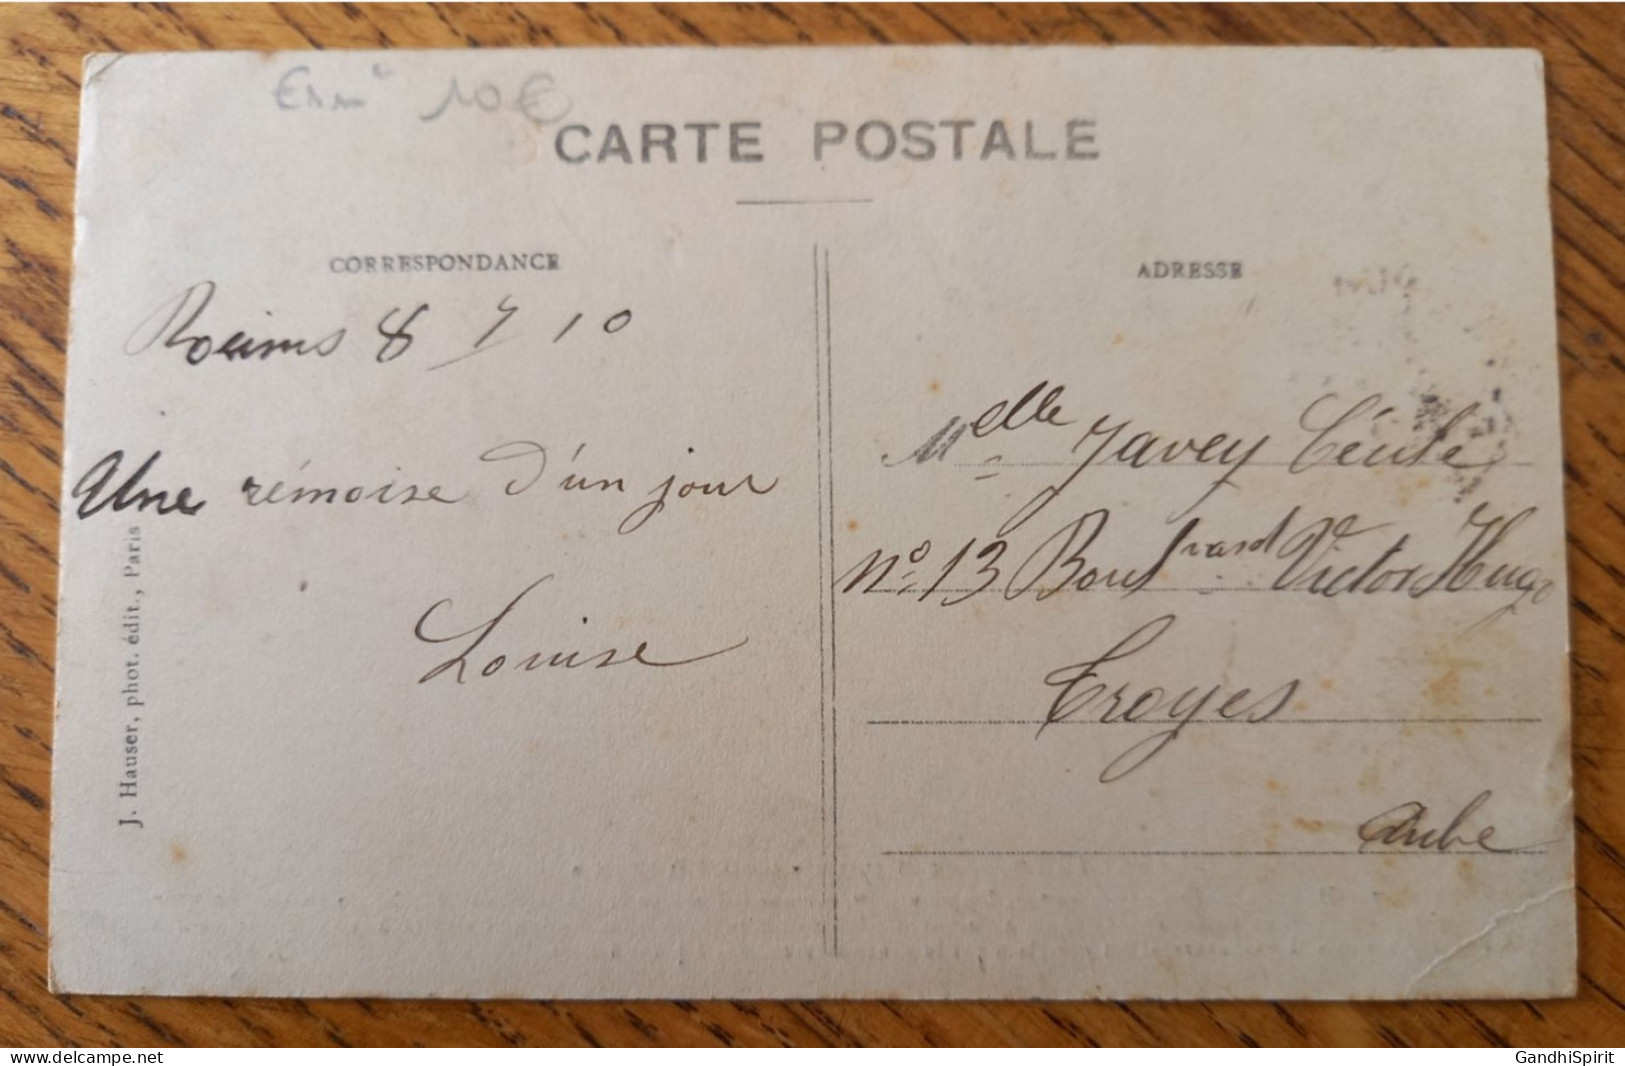 10€
CARTE POSTALE
CORRESPONDANCE
Reims 8 7 10
Une rémoise d'un jour
Louise
J. Hauser, phot. édit., Paris
ADRESSE
Melle Javey Cécile
N° 13 Boulvard Victor Hugo
Troyes
Aube
www.delcampe.net
GandhiSpirit